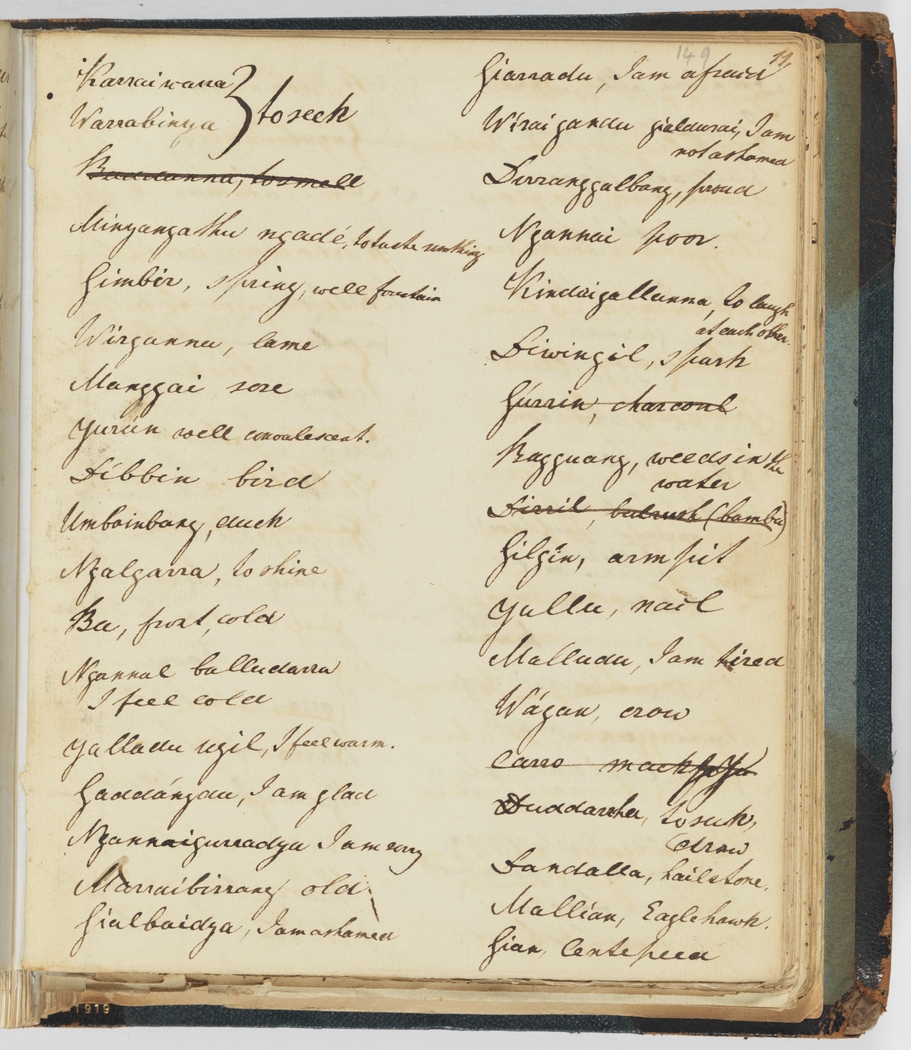 149 11.
Karraiwarra
Warrabinya } to seek
Baddanna, to smell
Minyangathu ngadé, to taste
Gimbir, spring, well fountain
Wirganna, lame
Manggai sore
Yurún well convalescent.
Díbbin bird
Umbainbang, duck
Ngalgarra, to shine
Ba, frost, cold
Ngannal balludarra
I feel cold
Yalladu ugil, I feel warm.
Gaddángdu, I am glad
Ngannaigurradya I am sorry
Marraibirrang old
Gialbaidya, I am ashamed
Giarradu, I am afraid
Wirai gandu gialdurai, I am
not ashamed
Dirranggalbang, proud
Ngannai poor.
Kindaigallanna, to laugh
at each other.
Diwingil, spark
Gúrrin, charcoal
Bagguang, weeds in the
water
Dirril, bulrush (bambu)
Gilgin, armpit
Yullu, nail
Malludu, I am tired
Wágan, crow
Carro
Duddarrha, to suck,
draw
Dandalla, hailstone.
Mallian, Eaglehawk.
Gian, Centepeea
1919